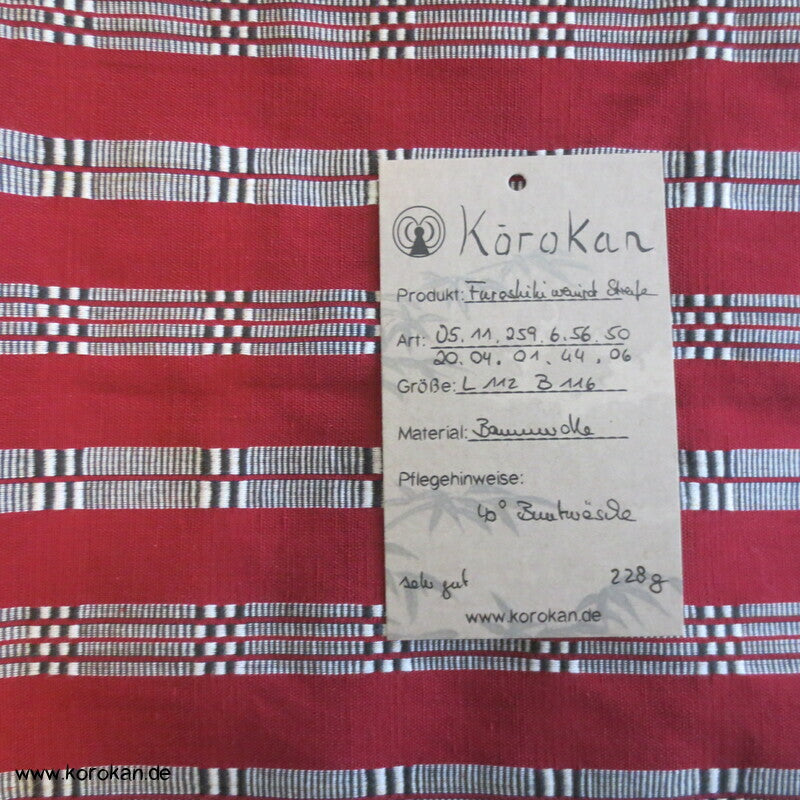 Kōrokan
Produkt: Furoshiki Streife
Art: 05.11.259.6.56.50
20.04.01.44.06
Größe: L 112 B 116
Material: Baumwolle
Pflegehinweise:
40° Buntwäsche
sehr gut 228g
www.korokan.de
www.korokan.de